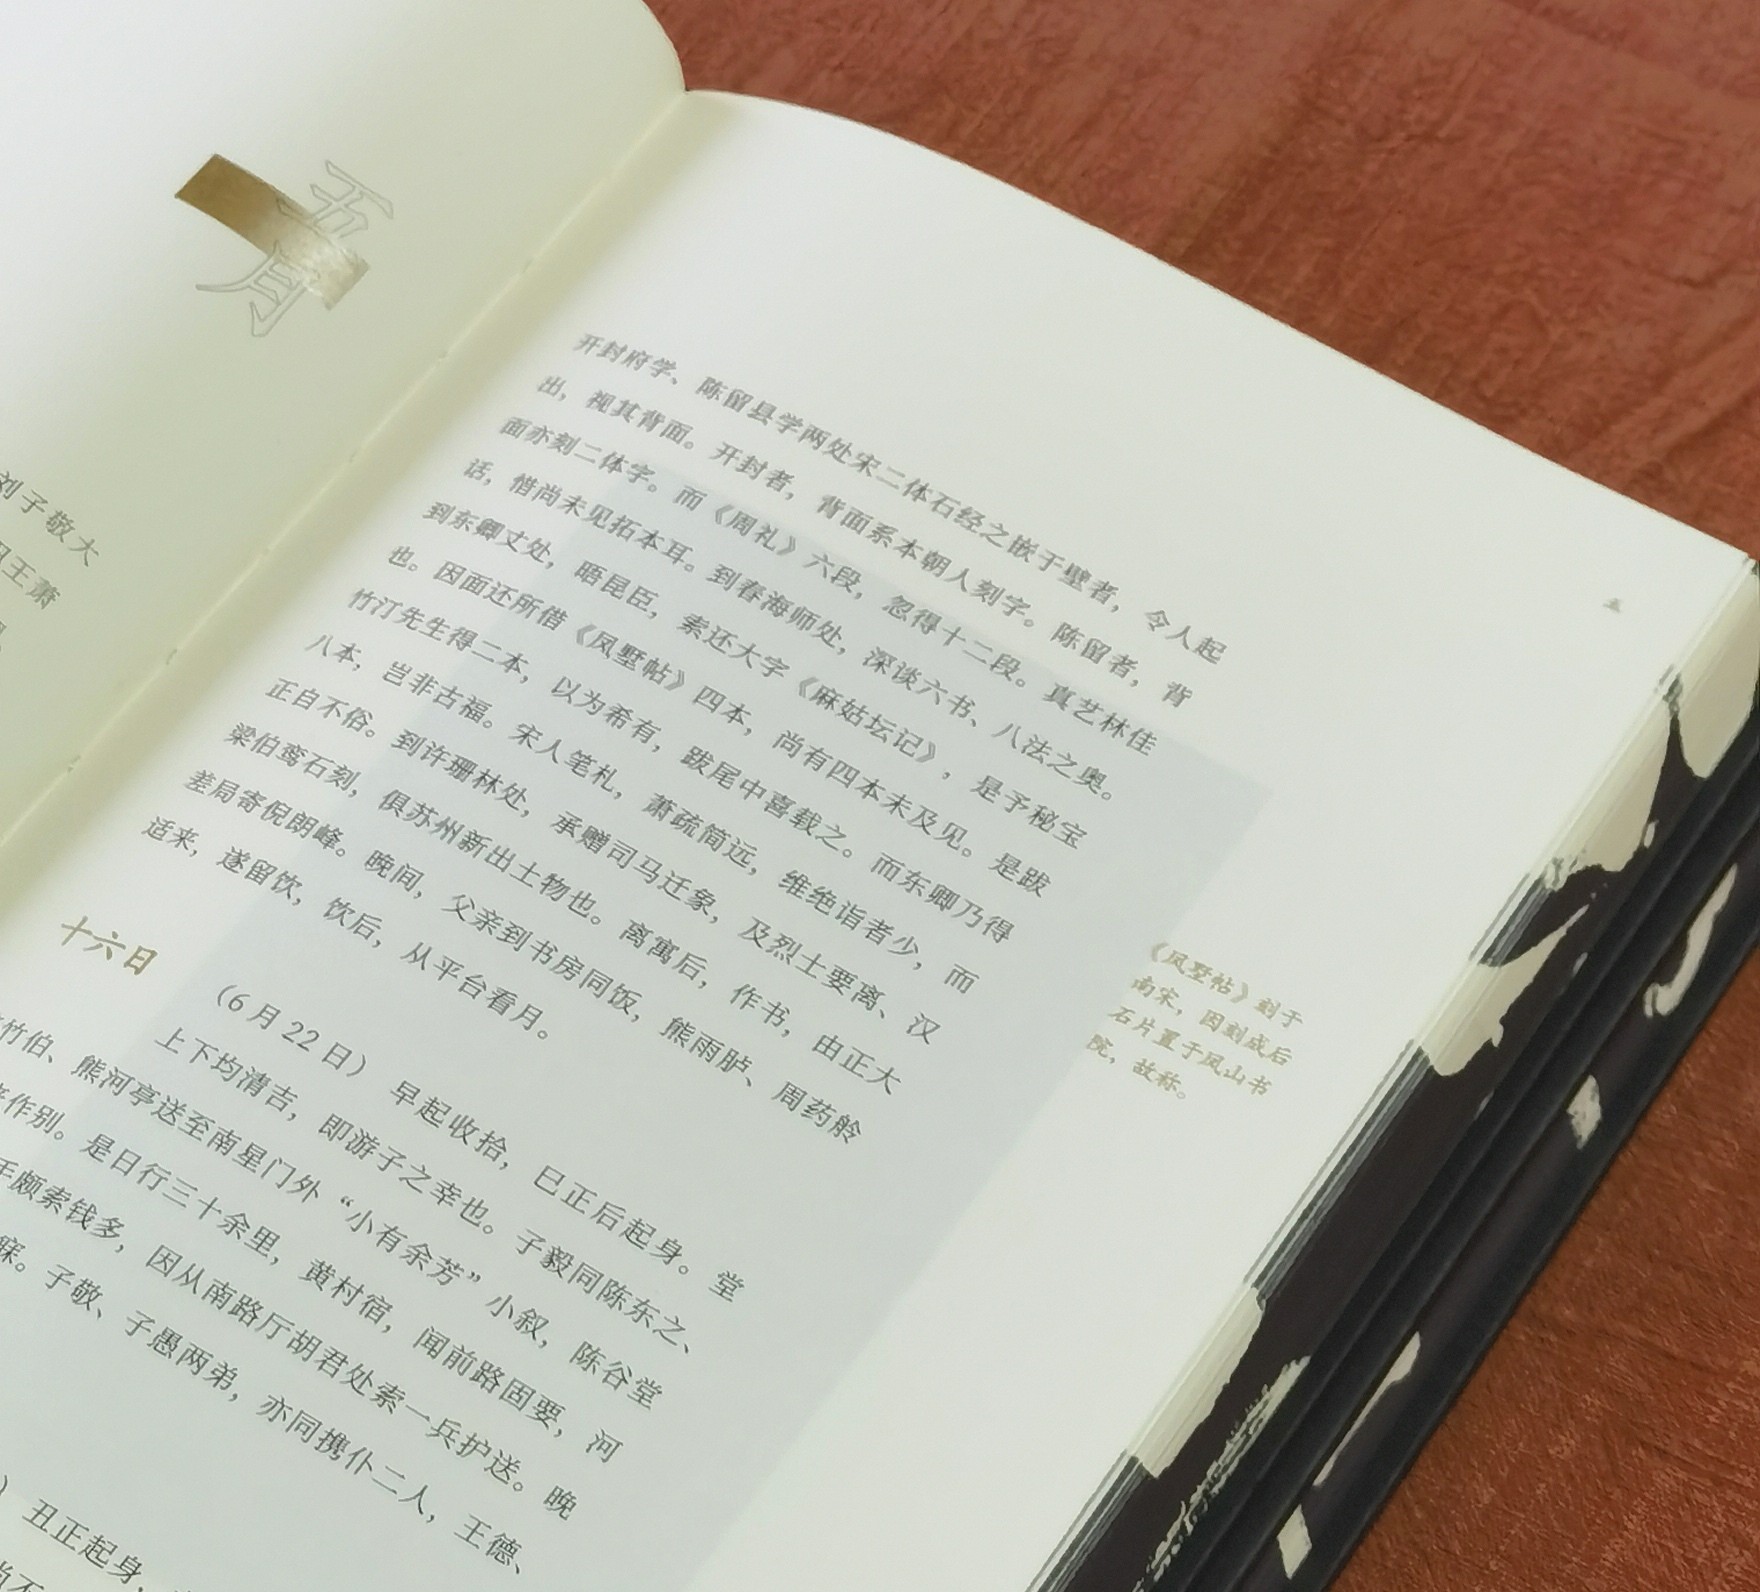 五月
刘子敬大
王萧
开封府学、陈留县学两处宋二体石经之嵌于壁者，令人起
出，视其背面。开封者，背面系本朝人刻字。陈留者，背
面亦刻二体字。而《周礼》六段，忽得十二段。真艺林佳
话，惜尚未见拓本耳。到春海师处，深谈六书、八法之奥。
到东卿丈处，晤昆臣，索还大字《麻姑坛记》，是予秘宝
也。因面还所借《凤墅帖》四本，尚有四本未及见。是跋
竹汀先生得二本，以为希有，跋尾中喜载之。而东卿乃得
八本，岂非古福。宋人笔札，萧疏简远，维绝诣者少，而
正自不俗。到许珊林处，承赠司马迁象，及烈士要离、汉
梁伯鸾石刻，俱苏州新出土物也。离寓后，作书，由正大
差局寄倪朗峰。晚间，父亲到书房同饭，熊雨胪、周药舲
适来，遂留饮，饮后，从平台看月。
十六日
（6月22日）早起收拾，巳正后起身。堂
上下均清吉，即游子之幸也。子毅同陈东之、
竹伯、熊河亭送至南星门外“小有余芳”小叙，陈谷堂
作别。是日行三十余里，黄村宿，闻前路固要，河
手颇索钱多，因从南路厅胡君处索一兵护送。晚
寐。子敬、子愚两弟，亦同携仆二人，王德、
）丑正起身，
《凤墅帖》刻于
南宋，因刻成后
石片置于凤山书
院，故称。
五